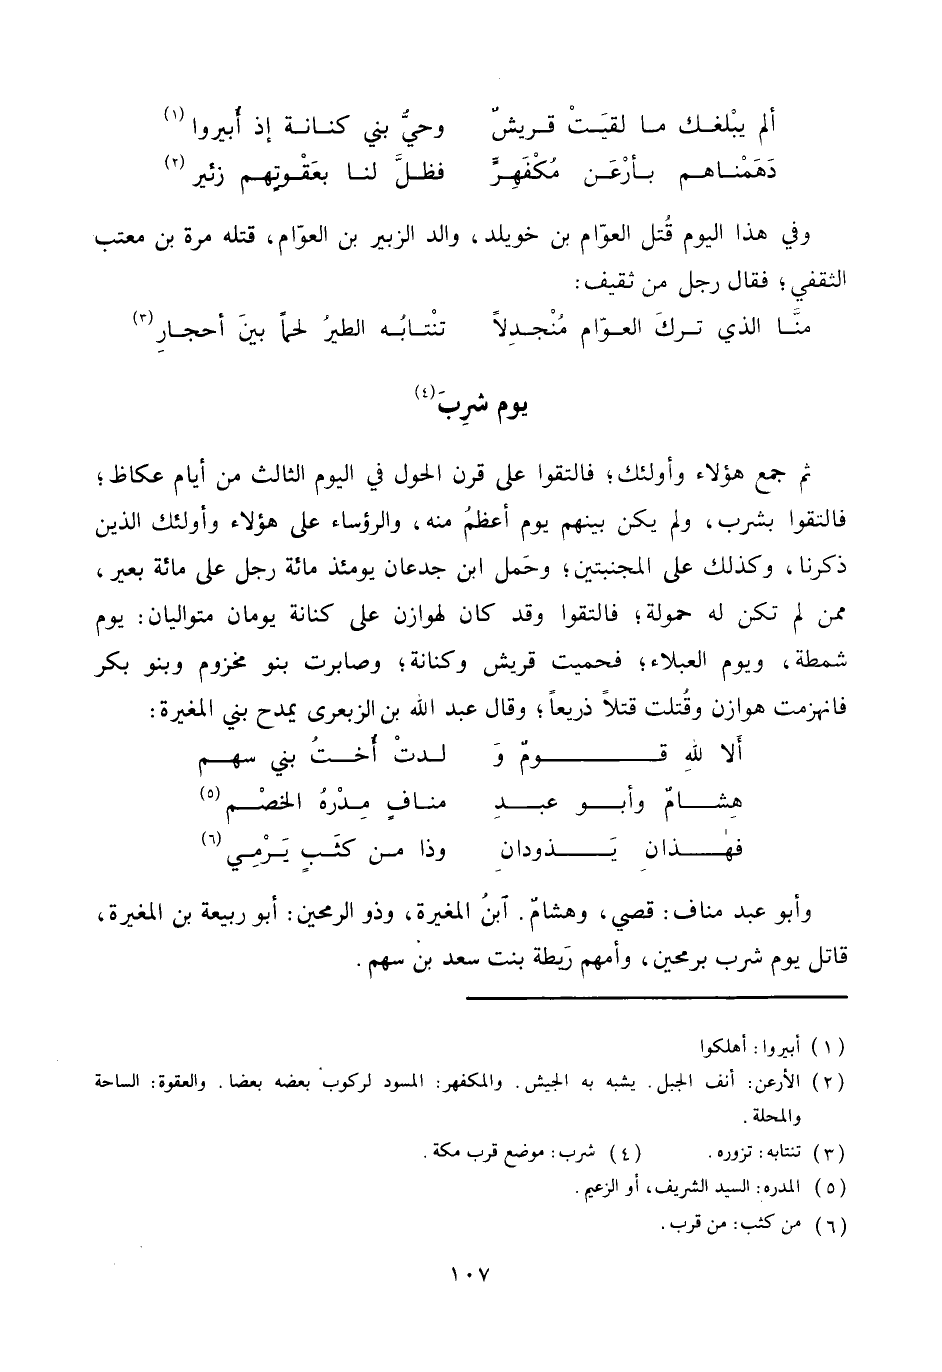 ألم يبْلغـك مـا لقيَـتْ قـريشٌ وحيُّ بني كنـانـة إذ أُبيروا (١)
دَهَمْنـاهـم بـأرْعَـن مُكْفَهِـرٍّ فظـلَّ لنـا بعَقْـوتِهـم زئير (٢)
وفي هذا اليوم قُتل العوّام بن خويلد ، والد الزبير بن العوّام، قتله مرة بن معتب
الثقفي ؛ فقال رجل من ثقيف :
منَّـا الذي تـركَ العـوّام مُنْجدِلاً تنْتـابُـه الطيرُ لحمًا بينَ أحجـارِ (٣)
يوم شرِبَ (٤)
ثم جمع هؤلاء وأولئك ؛ فالتقوا على قرن الحول في اليوم الثالث من أيام عكاظ ؛
فالتقوا بشرب ، ولم يكن بينهم يوم أعظمُ منه ، والرؤساء على هؤلاء وأولئك الذين
ذكرنا ، وكذلك على المجنبتين ؛ وحَمل ابن جدعان يومئذ مائة رجل على مائة بعير ،
ممن لم تكن له حمولة ؛ فالتقوا وقد كان لهوازن على كنانة يومان متواليان : يوم
شمطة ، ويوم العبلاء ؛ فحميت قريش وكنانة ؛ وصابرت بنو مخزوم وبنو بكر
فانهزمت هوازن وقُتلت قتلاً ذريعاً ؛ وقال عبد الله بن الزبعرى يمدح بني المغيرة :
ألا للهِ قــــومٌ وَ لـدتْ أُخـتُ بني سهـم
هِشـامٌ وأبـو عبـدِ منـافٍ مِـدْرهُ الخصْـمِ (٥)
فهـذانِ يَـذودانِ وذا مـن كثَـبٍ يَـرْمـي (٦)
وأبو عبد مناف : قصي ، وهشامٌ . آبنُ المغيرة ، وذو الرمحين : أبو ربيعة بن المغيرة ،
قاتل يوم شرب برمحين ، وأمهم رَيطة بنت سعد بن سهم .
(١) أبيروا : أهلكوا
(٢) الأرعن : أنف الجبل . يشبه به الجيش . والمكفهر : المسود لركوب بعضه بعضا . والعقوة : الساحة
والمحلة .
(٣) تنتابه : تزوره . (٤) شرب : موضع قرب مكة .
(٥) المدره : السيد الشريف ، أو الزعيم .
(٦) من كثب : من قرب .
١٠٧